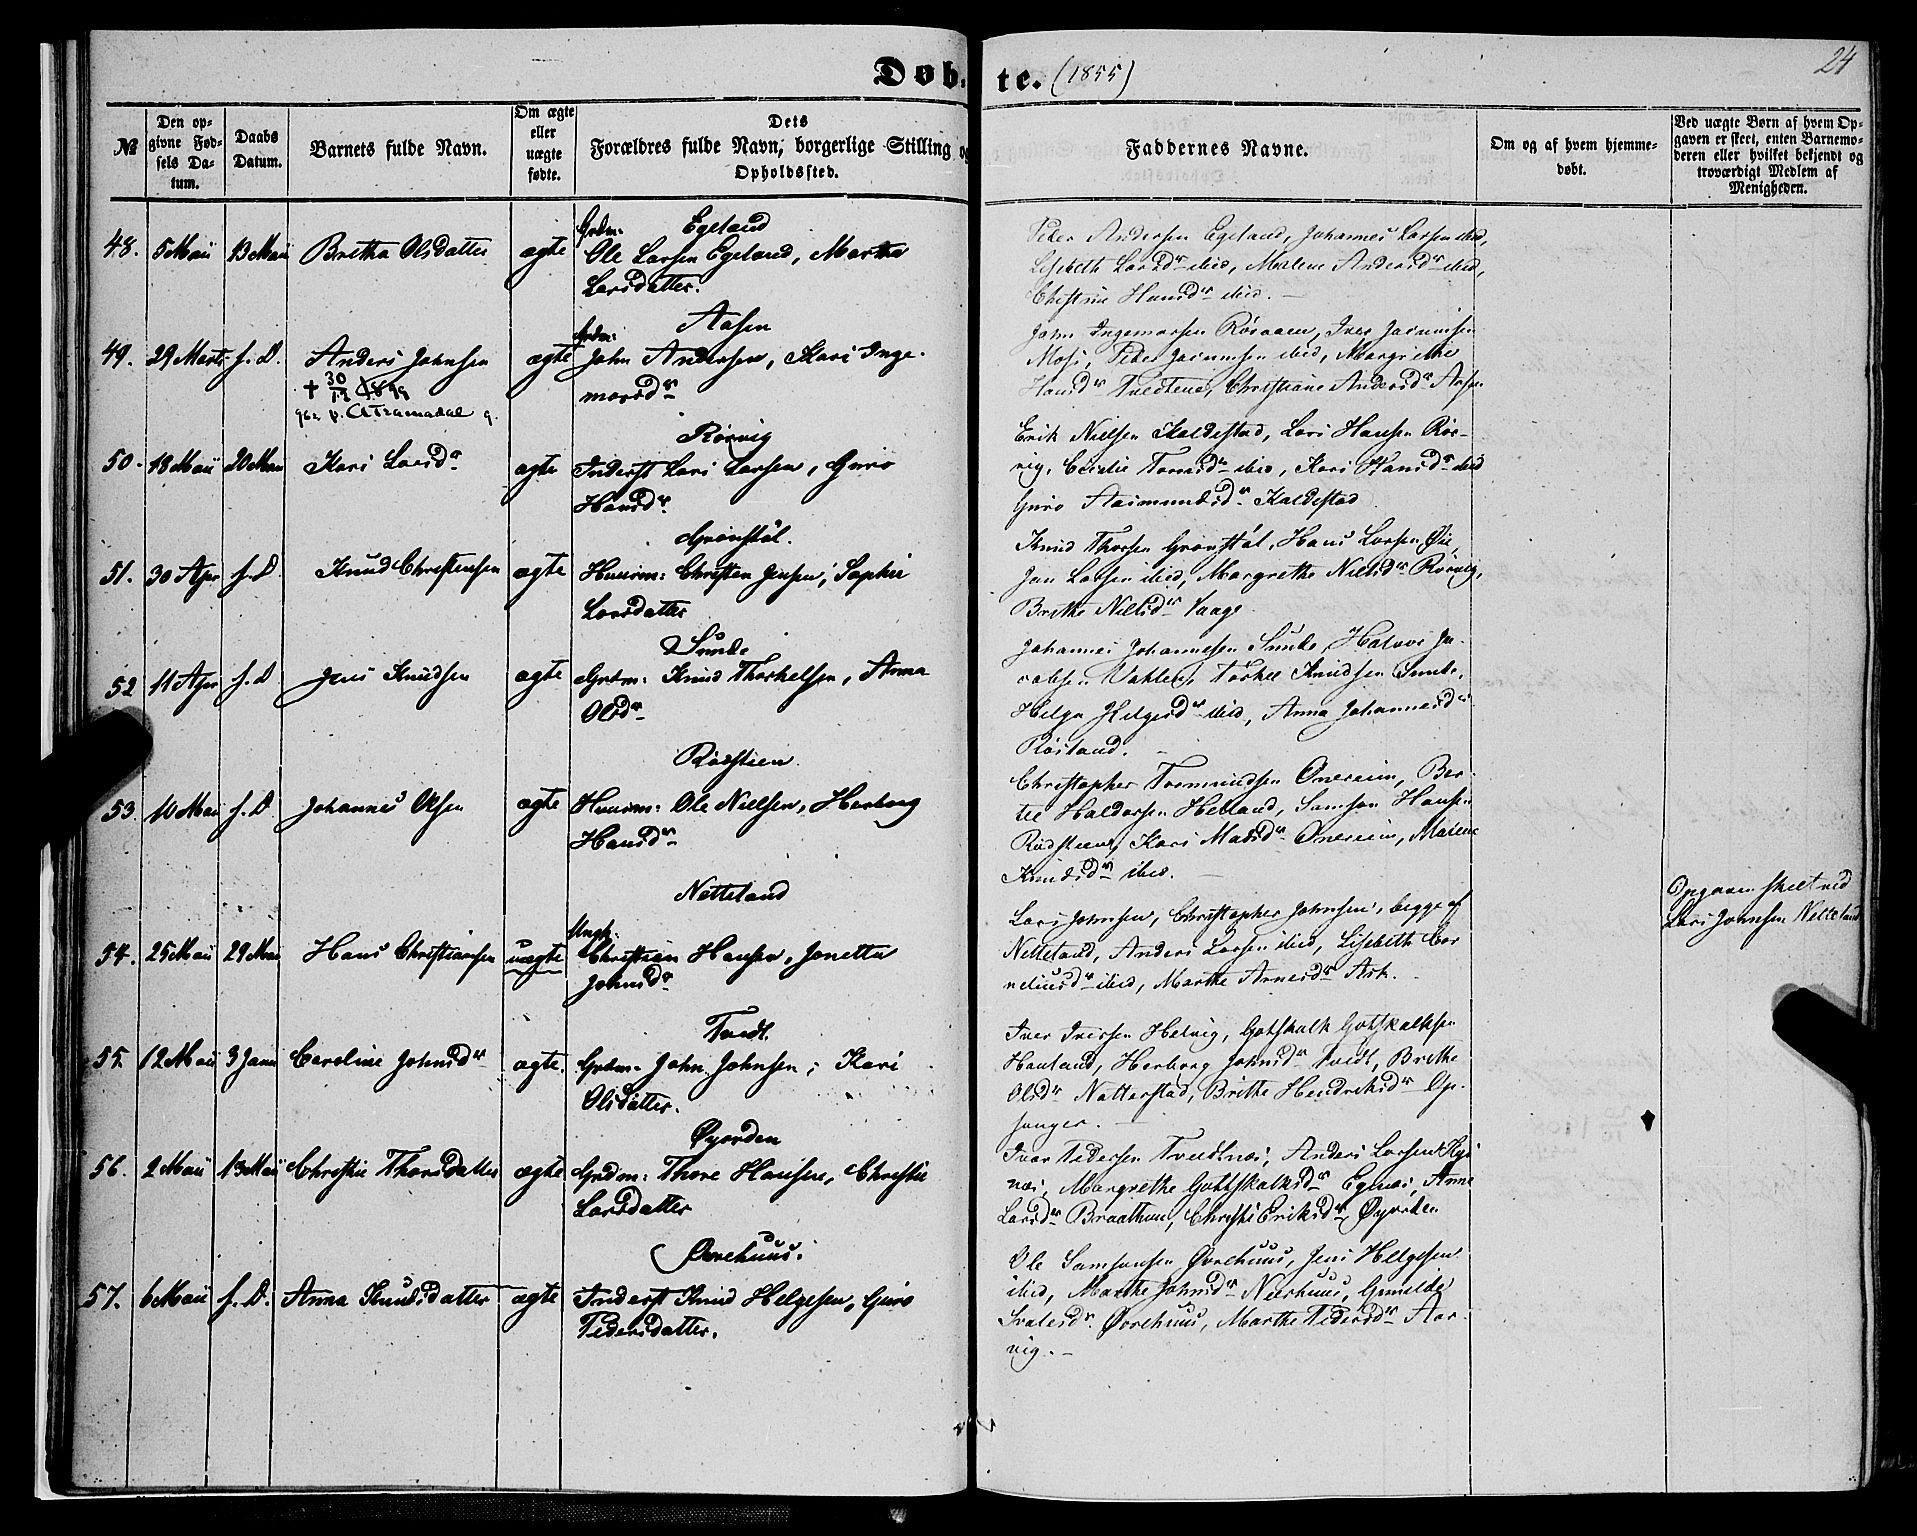 Døb-te. (1855)
24
№
Den op-
givne Fød-
sels Da-
tum.
Daabs
Datum.
Barnets fulde Navn.
Om ægte
eller
uægte
fødte.
Dets
Forældres fulde Navn, borgerlige Stilling og
Opholdssted.
Faddernes Navne.
Om og af hvem hjemme-
døbt.
Ved uægte Børn af hvem Op-
gaven er skeet, enten Barnemo-
deren eller hvilket bekjendt og
troværdigt Medlem af
Menigheden.
Egeland
48. 5 Mai 13 Mai Bretha Olsdatter ægte Grdm: Ole Larsen Egeland, Martha
Larsdatter.
Peder Andersen Egeland, Johannes Larsen ibid,
Lisebeth Larsdr ibid, Malene Andersdr ibid,
Christine Hansdr ibid. —
Aasen
49. 29 Marts f. D. Anders Johnsen ægte Grdm: John Andersen, Kari Inge-
marsdr
† 30/12 1899
John Ingemarsen Røsaaen, Iver
Mosi, Peder ibid, Margrethe
Hansdr Tvedtene, Christiane Andersdr Aasen
Rørvig
50. 18 Mai 20 Mai Kari Larsdr ægte Inderst Lars Larsen, Guro
Hansdr
Erik Nielsen Kaldestad, Lars Hansen Rør-
vig, Cecilie ibid, Kari Hansdr ibid
Guro Aasmundsdr Kaldestad
Grønstøl.
51. 30 Apr f. D. Knud Christensen ægte Huusm: Christen Jensen, Sophie
Larsdatter
Knud Thorsen Grønstøl, Hans Larsen Øie,
Jan Larsen ibid, Margrethe Nielsdr Rørvig,
Brithe Nielsdr Vaage.
Sunde
52 11 Apr f. D Jens Knudsen ægte Grdm: Knud Thorkelsen, Anna
Olsdr
Johannes Johannesen Sunde, Halvor Ja-
cobsen Vatlen, Torkel Knudsen Sunde,
Helga Helgesdr ibid, Anna Johannesdr
Røsland.
Rødstien
53. 10 Mai f. D. Johannes Olsen ægte Huusm: Ole Nielsen, Herborg
Hansdr
Christopher Tormundsen Onereim, Ber-
tel Haldorsen Helland, Samson Hansen
Rødstien, Kari Madsdr Onereim, Malene
Knudsdr ibid.
Netteland
54. 25 Mai 29 Mai Hans Christiansen uægte Ungk: Christian Hansen, Jonetta
Johnsdr
Lars Johnsen, Christopher Johnsen, begge af
Netteland, Anders Larsen ibid, Lisebeth Cor-
neliusdr ibid, Marthe Arnesdr Ask.
Opgaven skeet ved
Lars Johnsen Netteland
Tvedt.
55. 12 Mai 3 Juni Caroline Johnsdr ægte. Grdm. John Johnsen, Kari
Olsdatter.
Iver Iversen Helvig, Gotskalk Gotskalksen
Hauland, Herborg Johnsdr Tvedt, Brithe
Olsdr Natterstad, Brithe Hendriksdr Op-
sanger. —
Øyorden
56. 2 Mai 13 Mai Christie Thorsdatter ægte Grdm: Thore Hansen, Christie
Larsdatter
Ivar Pedersen Tvedtnæs, Anders Larsen Ege-
næs, Margrethe Gottskalksdr Egenæs, Anne
Larsdr Braathun, Christi Eriksdr Øyorden
Øvrehuus.
57. 6 Mai f. D. Anna Knudsdatter ægte Inderst Knud Helgesen, Guro
Pedersdatter.
Ole Samsonsen Øvrehuus, Jens Helgesen
ibid, Marthe Johnsdr Neerhuus, Gunilde
Øvrehuus, Marthe Pedersdr Aar-
vig. —